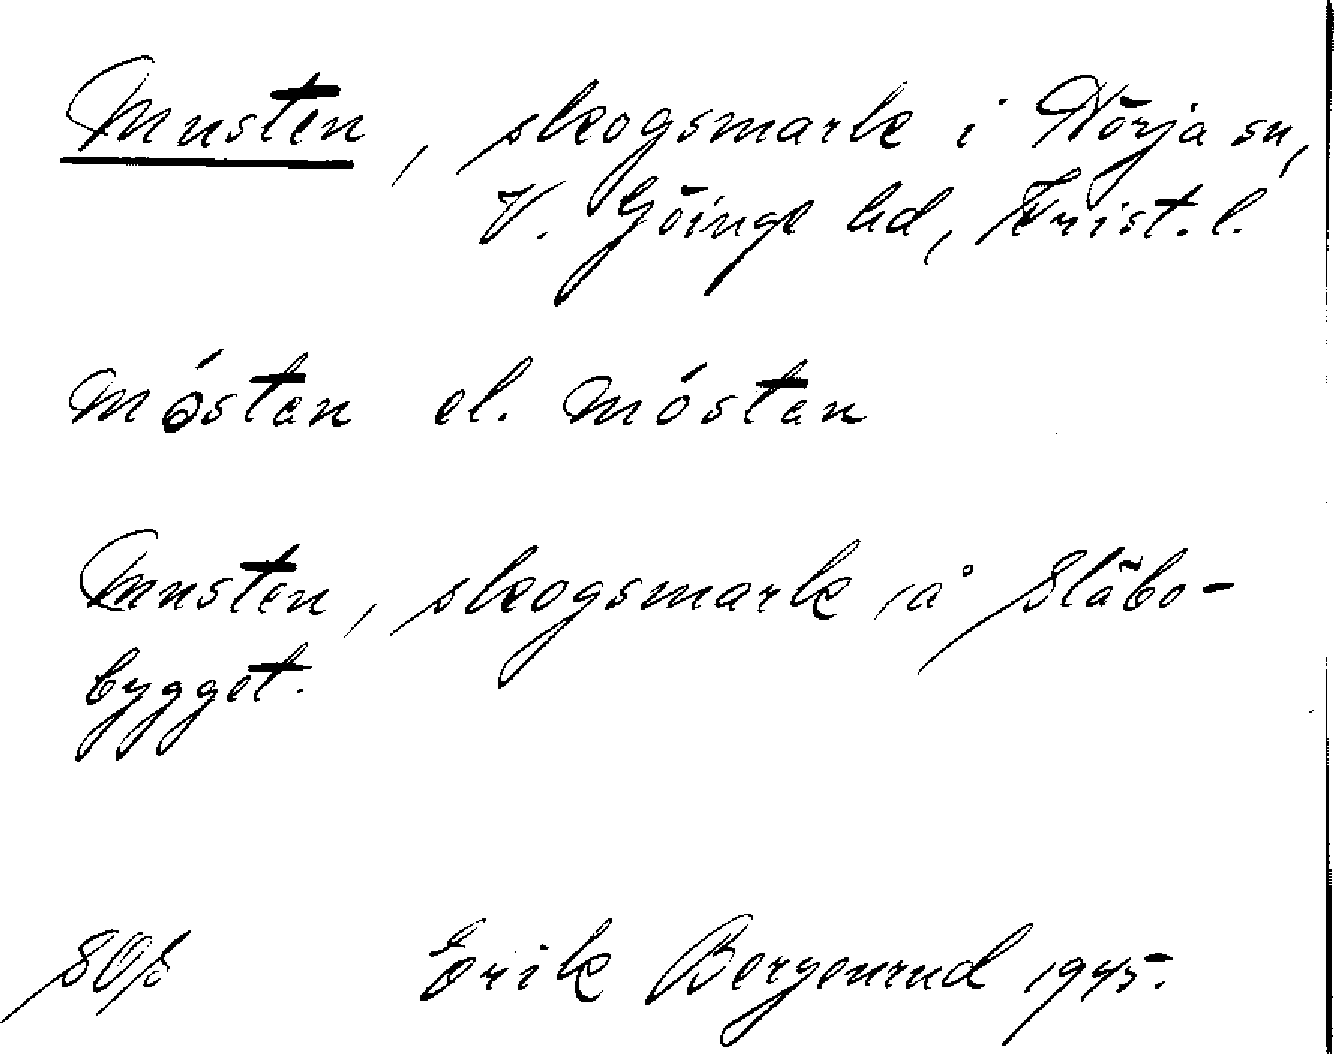 Musten, skogsmark i Nörja sn,
V. Göinge hd, Krist. l.
móstan el. móstan
Musten, skogsmark å Släbo-
bygget.
SOS Erik Bergenrud 1945.